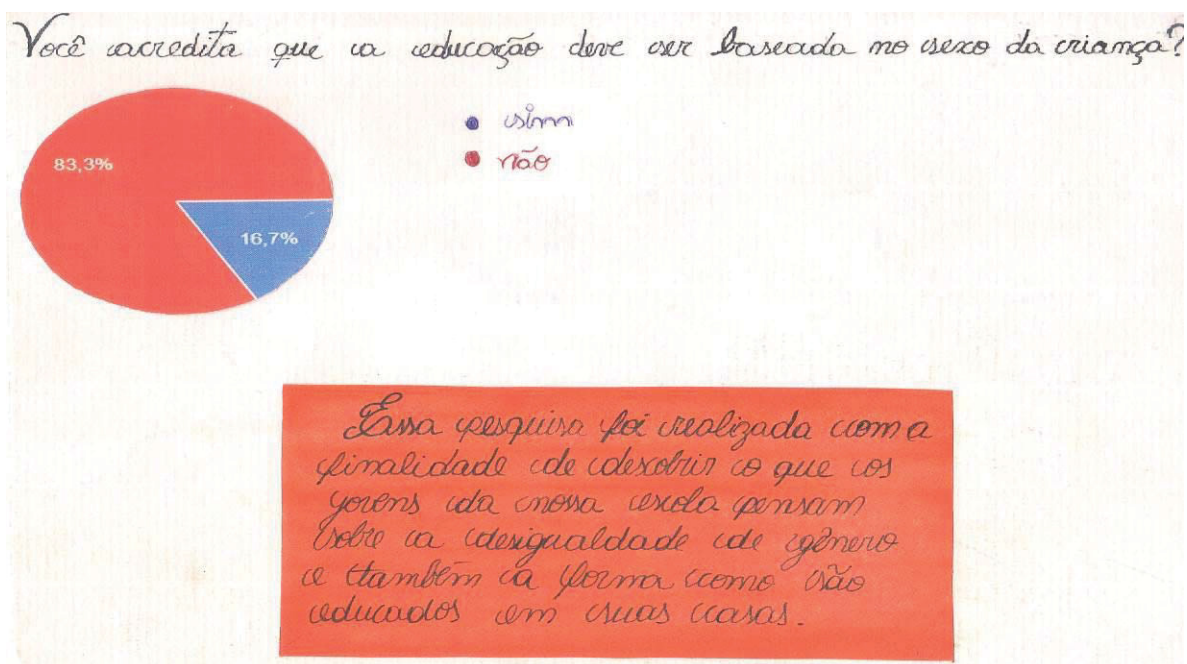 Você acredita que a educação deve ser baseada no sexo da criança?
sim
não
83,3%
16,7%
Essa pesquisa foi realizada com a
finalidade de descobrir o que os
jovens da nossa escola pensam
sobre a desigualdade de gênero
e também a forma como são
educados em suas casas.